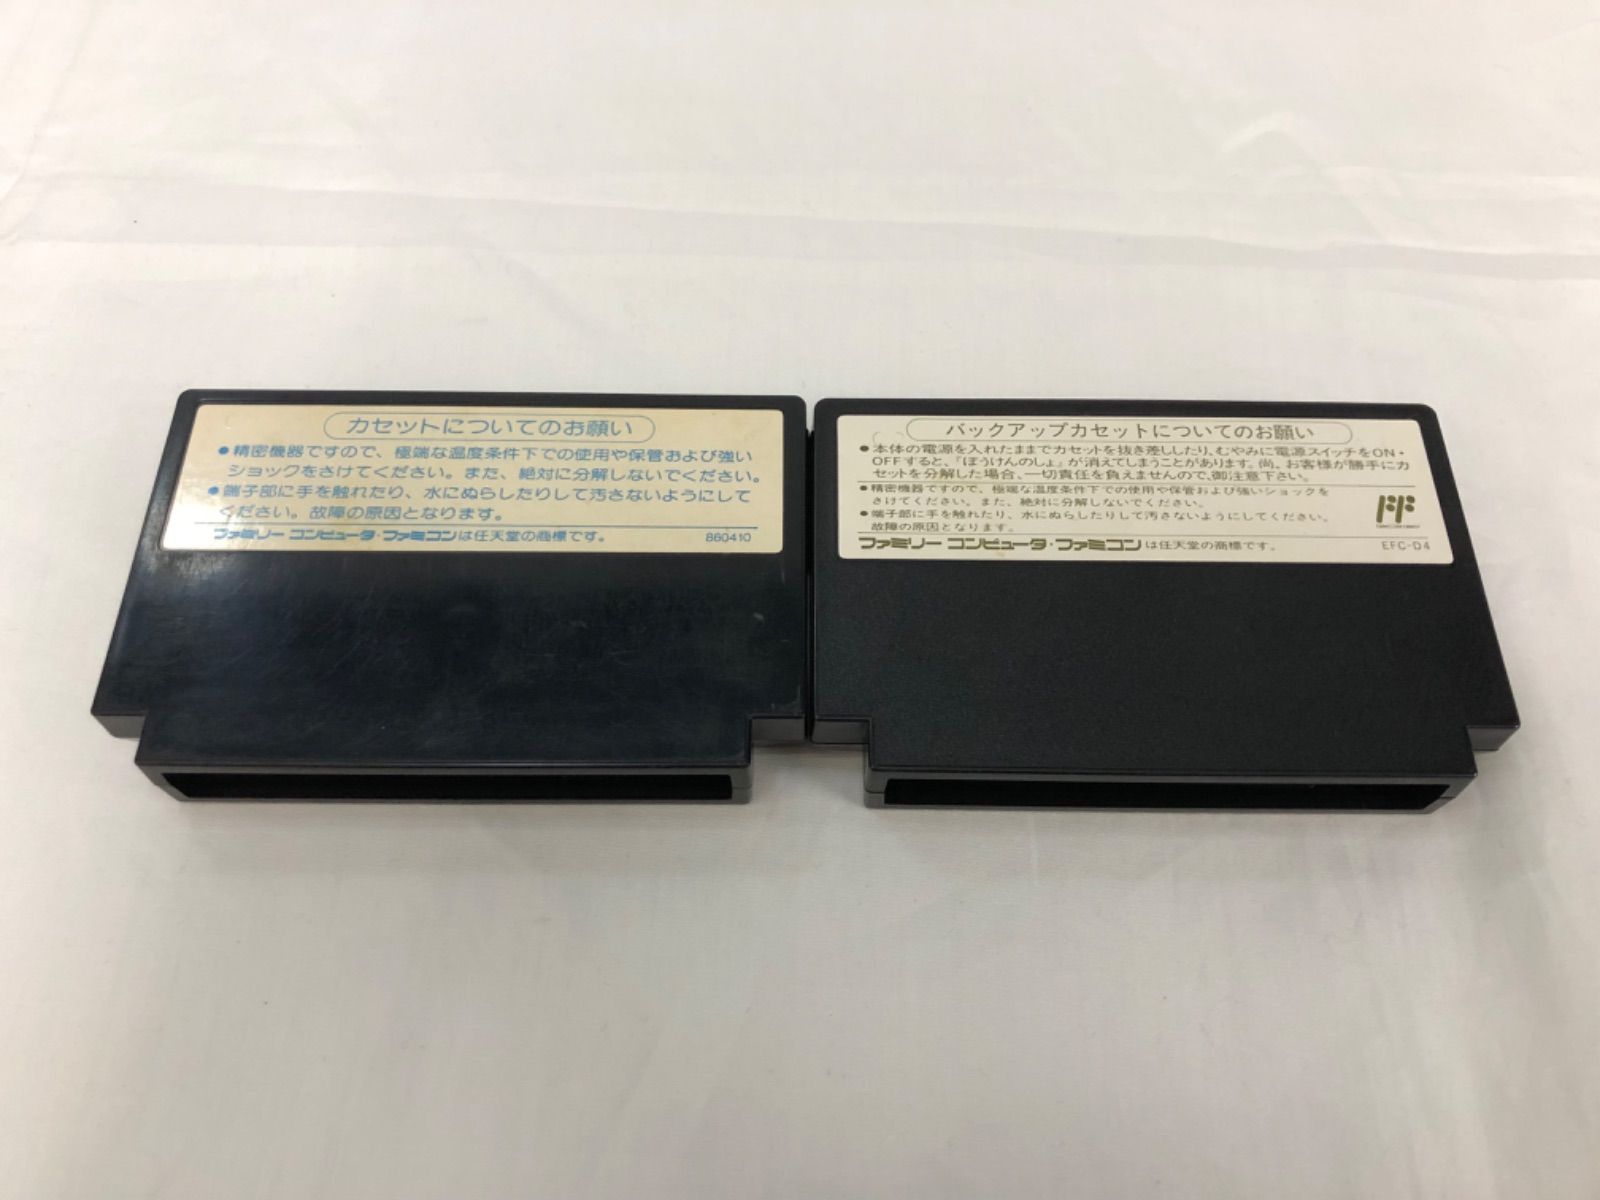 カセットについてのお願い
●精密機器ですので、極端な温度条件下での使用や保管および強い
ショックをさけてください。また、絶対に分解しないでください。
●端子部に手を触れたり、水にぬらしたりして汚さないようにして
ください。故障の原因となります。
ファミリー コンピュータ・ファミコンは任天堂の商標です。 860410
バックアップカセットについてのお願い
●本体の電源を入れたままでカセットを抜き差ししたり、むやみに電源スイッチをON・
OFFすると、「ぼうけんのしょ」が消えてしまうことがあります。尚、お客様が勝手にカ
セットを分解した場合、一切責任を負えませんので、御注意下さい。
●精密機器ですので、極端な温度条件下での使用や保管および強いショックを
さけてください。また、絶対に分解しないでください。
●端子部に手を触れたり、水にぬらしたりして汚さないようにしてください。
故障の原因となります。
ファミリー コンピュータ・ファミコンは任天堂の商標です。 EFC-D4